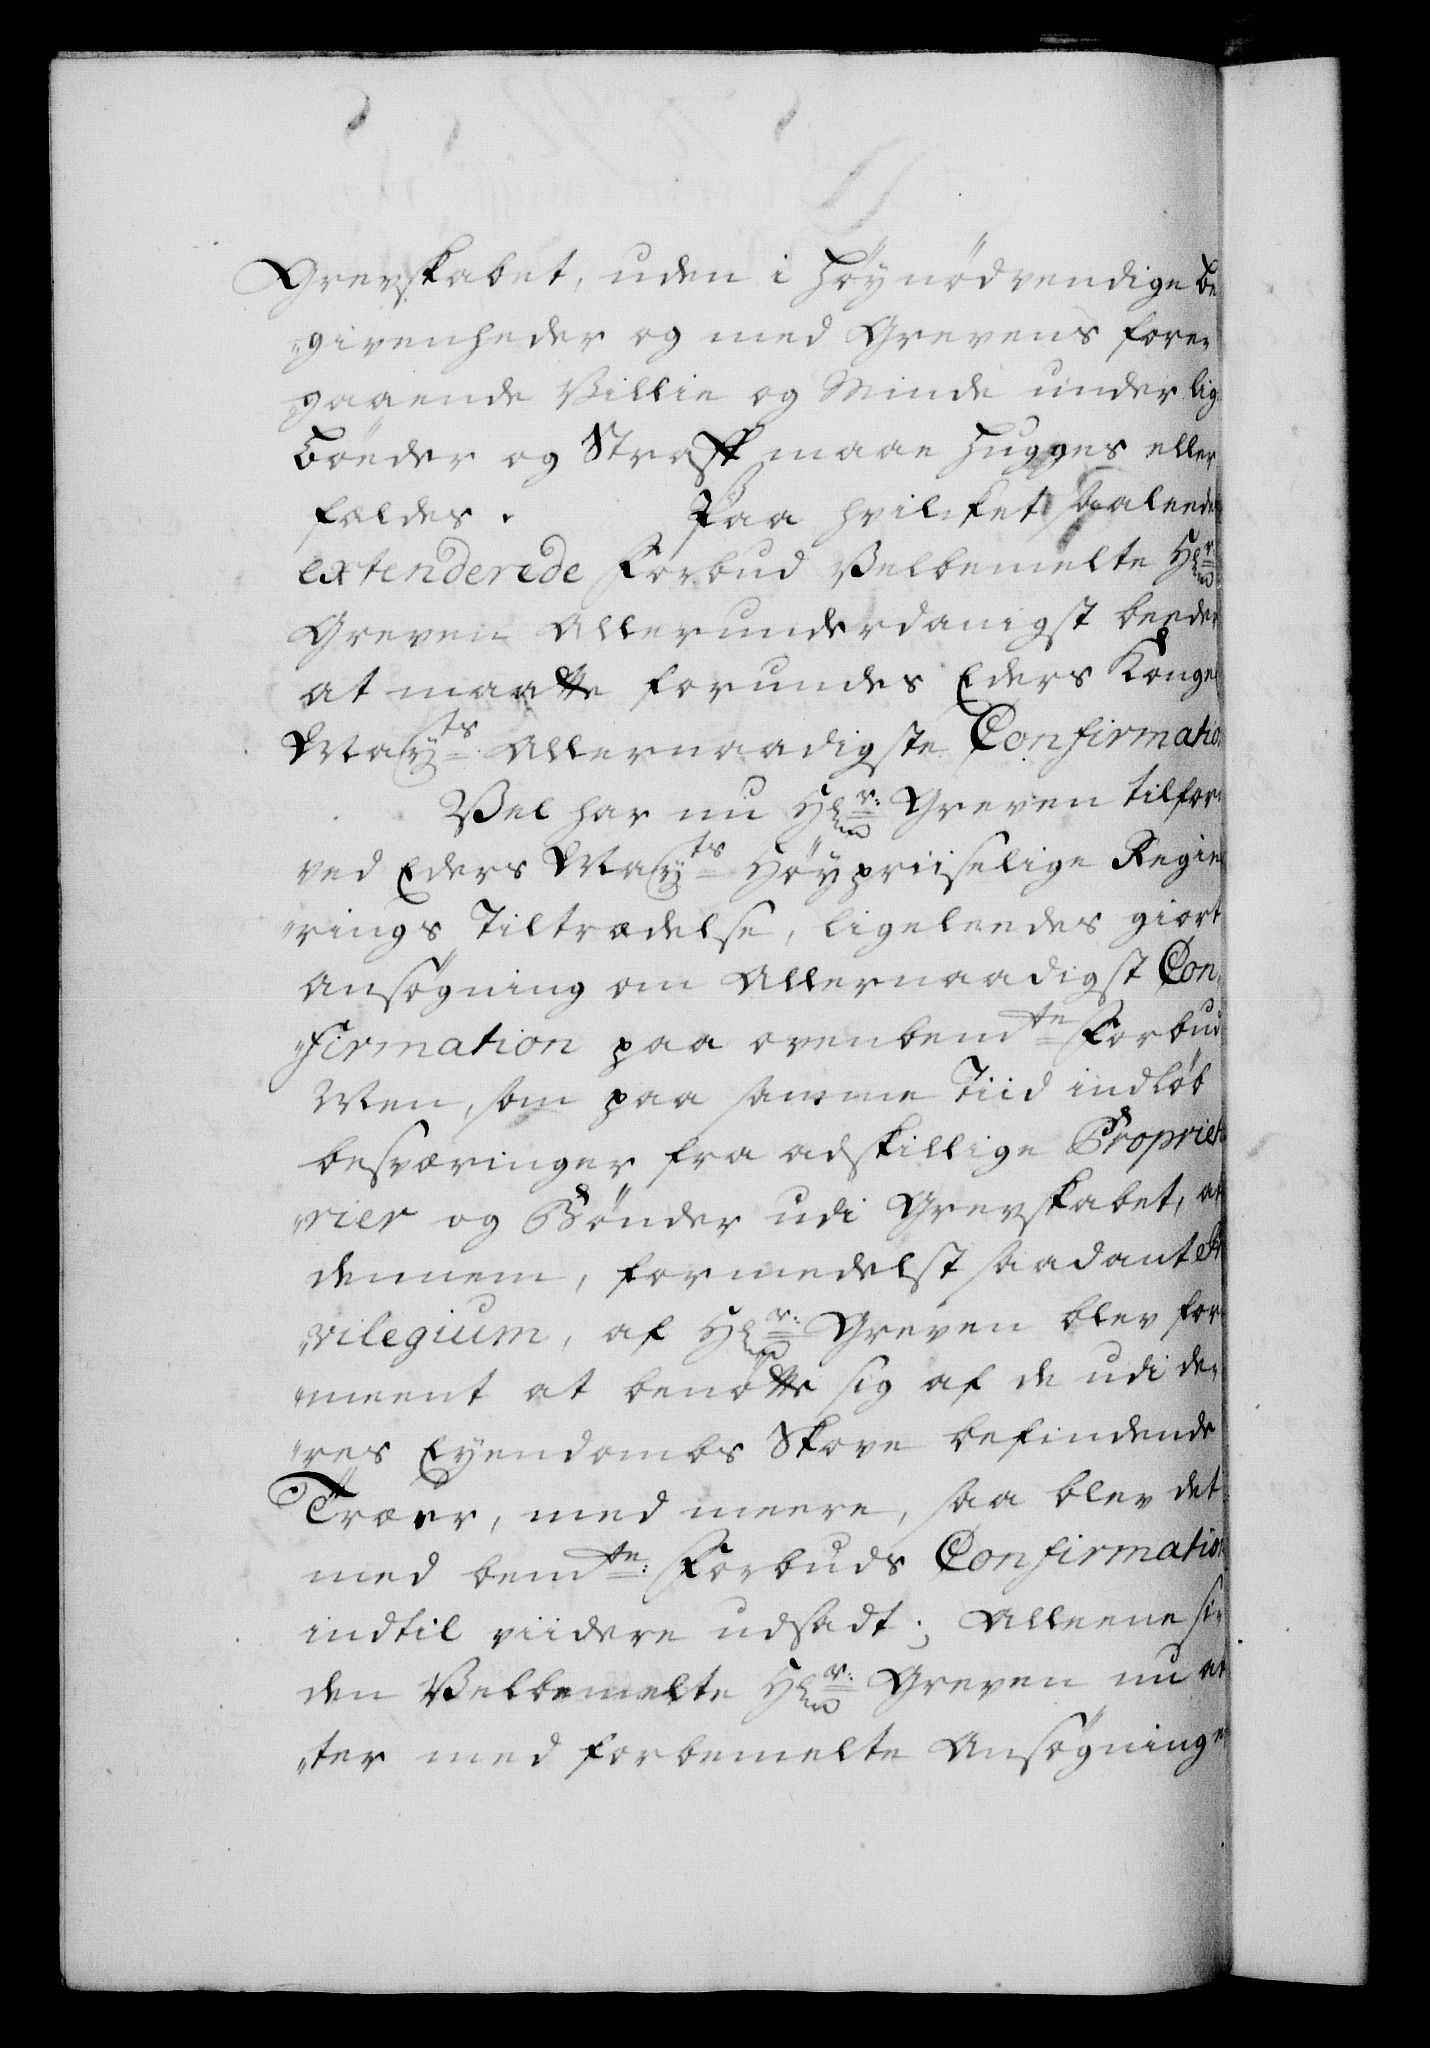 Grevskabet, uden i höynödvendige be
„givenheder og med Grevens fore„
„gaaende Villie og Minde under lig
böeder og Straff maae hugges eller
fældes. Paa hvilket saaleedes
extenderede Forbud Velbemelte Hr:
Greven Allerunderdanigst beeder
at maatte forundes Eders Konge
Mayts Allernaadigste Confirmation
Vel har nu Hr: Greven tilforn
ved Eders Mayts Höypriiselige Regie
„rings Tiltrædelse, ligeleedes giort
Ansögning om Allernaadigst Con„
„firmation paa ovenbemte Forbud
Men, som paa samme Tiid indlöb
besværinger fra adskillige Proprieta
„rier og Bönder udi Grevskabet, at
dennem, formedelst saadant Pri
„vilegium, af Hr: Greven blev for
„meent at benötte sig af de udi de„
„res Eyendombs Skove befindende
Træer, med meere, saa blev det
med bemte: Forbuds Confirmation
indtil viidere udsadt; Alleene si„
den Velbemelte Hr: Greven nu at
„ter med forbemelte Ansögninge